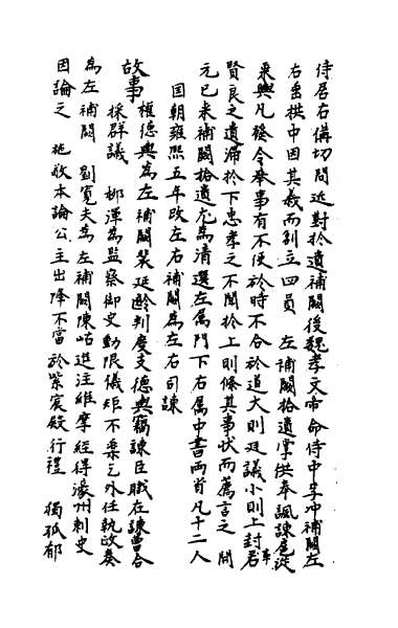 侍居右備切問近對拾遺補闕後魏孝文帝命侍中李冲補闕左
右垂拱中因其義而創立四員 左補闕拾遺掌供奉諷諫扈從
乘輿凡發令舉事有不便於時不合於道大則廷議小則上封若
賢良之遺滯於下忠孝之不聞於上則條其事狀而薦言之 開
元已來補闕拾遺尤為清選左屬門下右屬中書兩省凡十二人
國朝雍熙五年改左右補闕為左右司諫
故事 權德輿為左補闕裴延齡判度支德輿竊諫臣職在諫曹合
採群議 柳渾為監察御史動限儀矩不樂乞外任執政奏
為左補闕 劉寬夫為左補闕陳岵進注維摩經得濠州刺史
因論之 施敬本論公主出降不當於紫宸殿行禮 獨孤郁